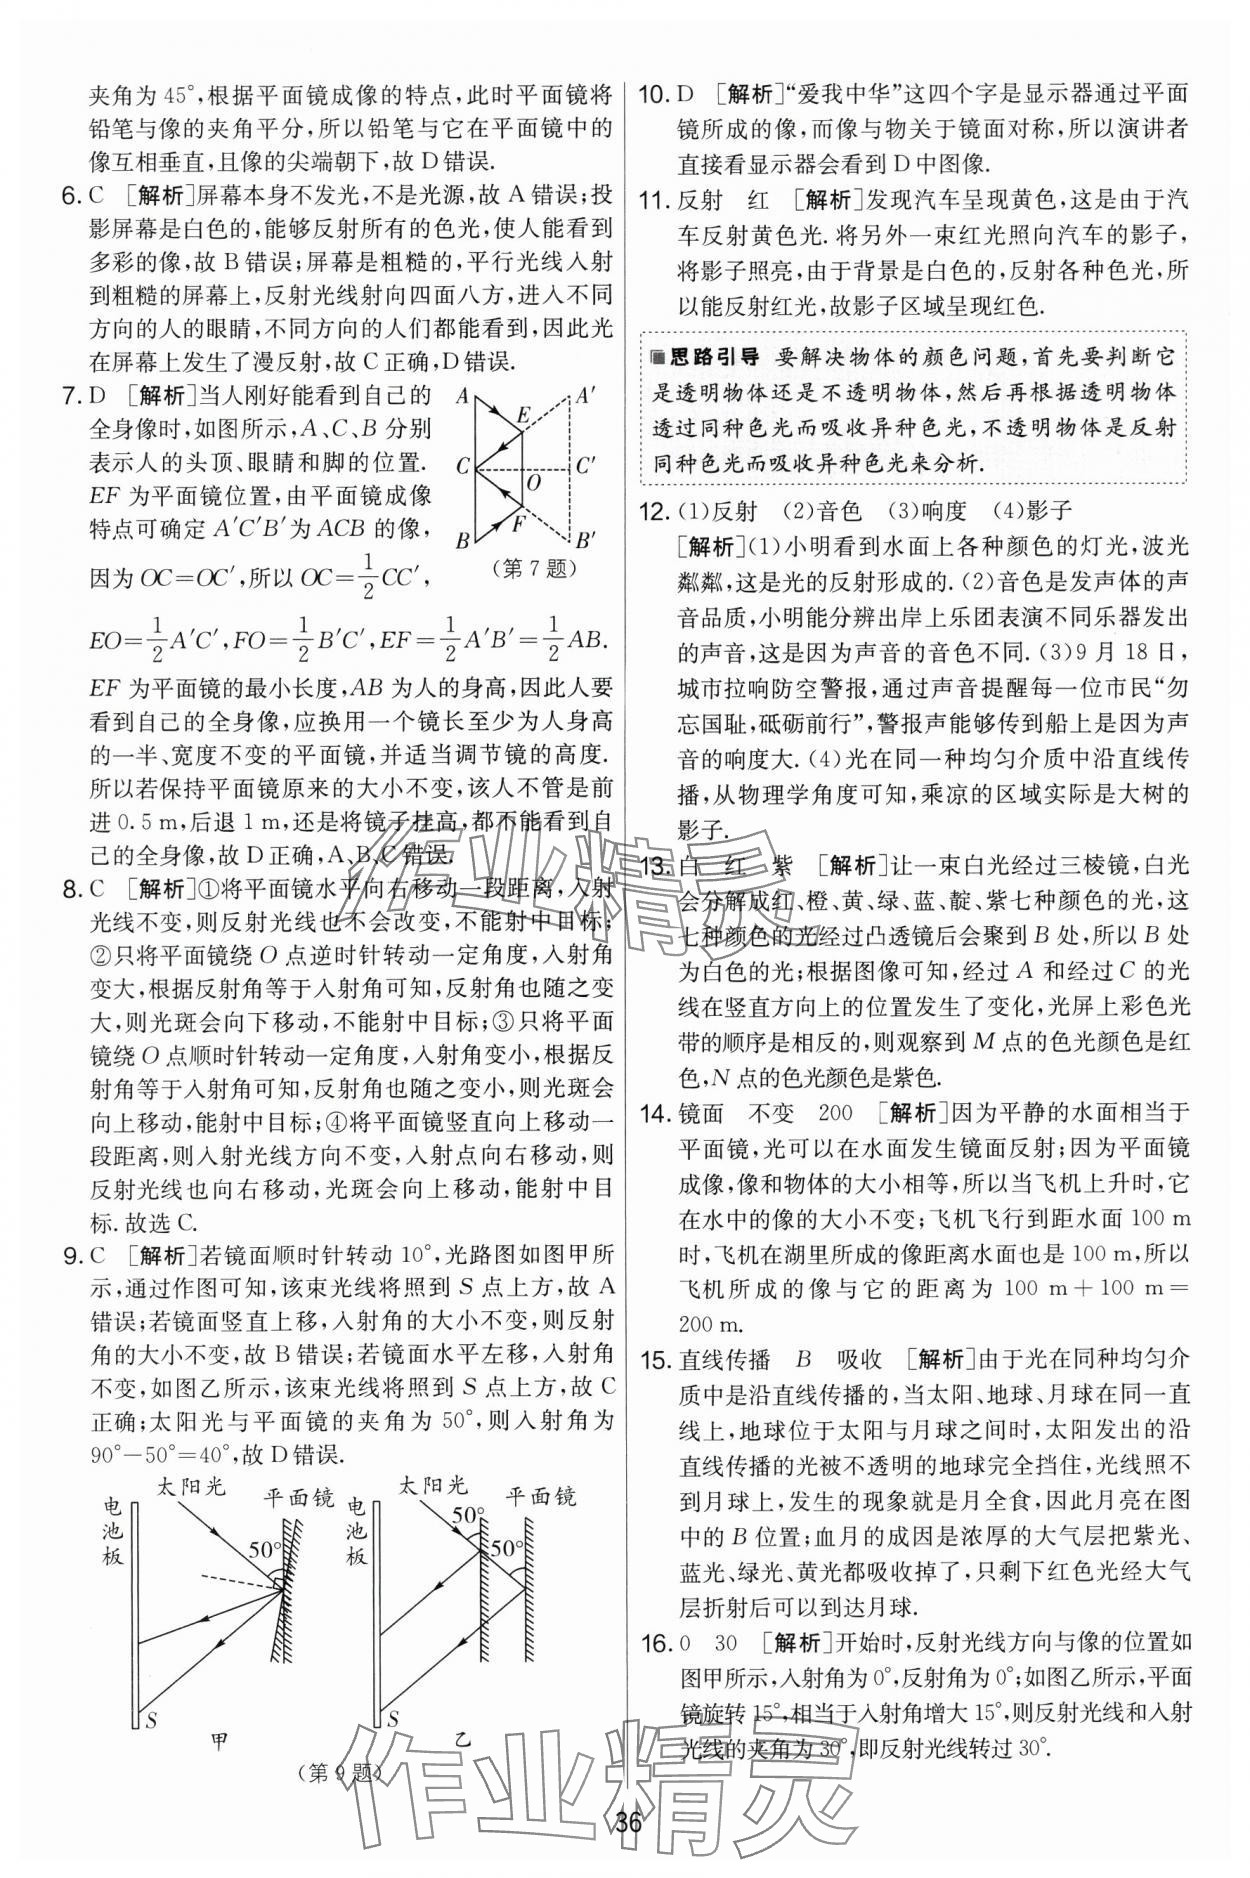 夹角为 45°,根据平面镜成像的特点,此时平面镜将
铅笔与像的夹角平分,所以铅笔与它在平面镜中的
像互相垂直,且像的尖端朝下,故 D 错误.
6. C [解析]屏幕本身不发光,不是光源,故 A 错误;投
影屏幕是白色的,能够反射所有的色光,使人能看到
多彩的像,故 B 错误;屏幕是粗糙的,平行光线入射
到粗糙的屏幕上,反射光线射向四面八方,进入不同
方向的人的眼睛,不同方向的人们都能看到,因此光
在屏幕上发生了漫反射,故 C 正确,D 错误.
7. D [解析]当人刚好能看到自己的
全身像时,如图所示,A、C、B 分别
表示人的头顶、眼睛和脚的位置.
EF 为平面镜位置,由平面镜成像
特点可确定 A′C′B′为 ACB 的像,
因为 OC=OC′,所以 OC=1/2CC′,
A
A′
E
C
C′
O
F
B
B′
(第 7 题)
EO=1/2A′C′,FO=1/2B′C′,EF=1/2A′B′=1/2AB.
EF 为平面镜的最小长度,AB 为人的身高,因此人要
看到自己的全身像,应换用一个镜长至少为人身高
的一半、宽度不变的平面镜,并适当调节镜的高度.
所以若保持平面镜原来的大小不变,该人不管是前
进 0.5 m,后退 1 m,还是将镜子挂高,都不能看到自
己的全身像,故 D 正确,A、B、C 错误.
8. C [解析]①将平面镜水平向右移动一段距离,入射
光线不变,则反射光线也不会改变,不能射中目标;
②只将平面镜绕 O 点逆时针转动一定角度,入射角
变大,根据反射角等于入射角可知,反射角也随之变
大,则光斑会向下移动,不能射中目标;③只将平面
镜绕 O 点顺时针转动一定角度,入射角变小,根据反
射角等于入射角可知,反射角也随之变小,则光斑会
向上移动,能射中目标;④将平面镜竖直向右移动一
段距离,则入射光线方向不变,入射点向右移动,则
反射光线也向右移动,光斑会向上移动,能射中目
标.故选 C.
9. C [解析]若镜面顺时针转动 10°,光路图如图甲所
示,通过作图可知,该束光线将照到 S 点上方,故 A
错误;若镜面竖直上移,入射角的大小不变,则反射
角的大小不变,故 B 错误;若镜面水平左移,入射角
不变,如图乙所示,该束光线将照到 S 点上方,故 C
正确;太阳光与平面镜的夹角为 50°,则入射角为
90°−50°=40°,故 D 错误.
电池板
太阳光
平面镜
50°
S
甲
电池板
太阳光
平面镜
50°
50°
S
乙
(第 9 题)
10. D [解析]“爱我中华”这四个字是显示器通过平面
镜所成的像,而像与物关于镜面对称,所以演讲者
直接看显示器会看到 D 中图像.
11. 反射 红 [解析]发现汽车呈现黄色,这是由于汽
车反射黄色光.将另外一束红光照向汽车的影子,
将影子照亮,由于背景是白色的,反射各种色光,所
以能反射红光,故影子区域呈现红色.
思路引导 要解决物体的颜色问题,首先要判断它
是透明物体还是不透明物体,然后再根据透明物体
透过同种色光而吸收异种色光,不透明物体是反射
同种色光而吸收异种色光来分析.
12. (1)反射 (2)音色 (3)响度 (4)影子
[解析](1)小明看到水面上各种颜色的灯光,波光
粼粼,这是光的反射形成的.(2)音色是发声体的声
音品质,小明能分辨出岸上乐团表演不同乐器发出
的声音,这是因为声音的音色不同.(3)9 月 18 日,
城市拉响防空警报,通过声音提醒每一位市民“勿
忘国耻,砥砺前行”,警报声能够传到船上是因为声
音的响度大.(4)光在同一种均匀介质中沿直线传
播,从物理学角度可知,乘凉的区域实际是大树的
影子.
13. 白 红 紫 [解析]让一束白光经过三棱镜,白光
会分解成红、橙、黄、绿、蓝、靛、紫七种颜色的光,这
七种颜色的光经过凸透镜后会聚到 B 处,所以 B 处
为白色的光;根据图像可知,经过 A 和经过 C 的光
线在竖直方向上的位置发生了变化,光屏上彩色光
带的顺序是相反的,则观察到 M 点的色光颜色是红
色,N 点的色光颜色是紫色.
14. 镜面 不变 200 [解析]因为平静的水面相当于
平面镜,光可以在水面发生镜面反射;因为平面镜
成像,像和物体的大小相等,所以当飞机上升时,它
在水中的像的大小不变;飞机飞行到距水面 100 m
时,飞机在湖里所成的像距离水面也是 100 m,所以
飞机所成的像与它的距离为 100 m+100 m=
200 m.
15. 直线传播 B 吸收 [解析]由于光在同种均匀介
质中是沿直线传播的,当太阳、地球、月球在同一直
线上,地球位于太阳与月球之间时,太阳发出的沿
直线传播的光被不透明的地球完全挡住,光线照不
到月球上,发生的现象就是月全食,因此月亮在图
中的 B 位置;血月的成因是浓厚的大气层把紫光、
蓝光、绿光、黄光都吸收掉了,只剩下红色光经大气
层折射后可以到达月球.
16. 0 30 [解析]开始时,反射光线方向与像的位置如
图甲所示,入射角为 0°,反射角为 0°;如图乙所示,平面
镜旋转 15°,相当于入射角增大 15°,则反射光线和入射
光线的夹角为 30°,即反射光线转过 30°.
作业精灵
作业精灵
36